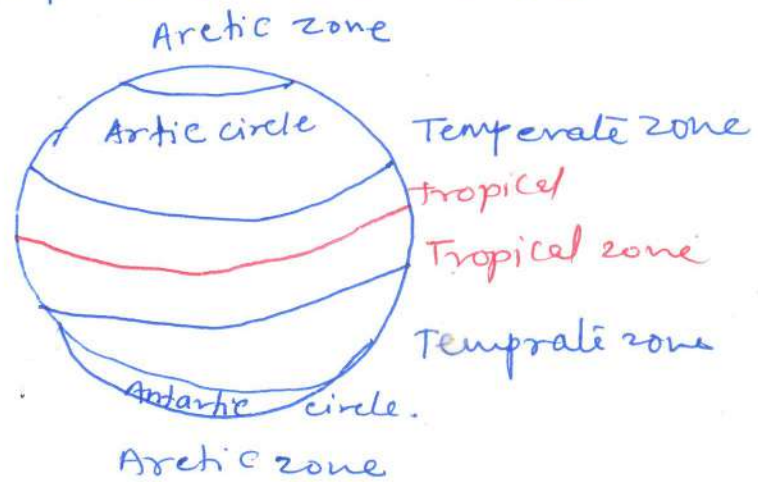 Arctic zone
Artic circle
Temperate zone
tropical
Tropical zone
Temprate zone
Antartic circle.
Arctic zone